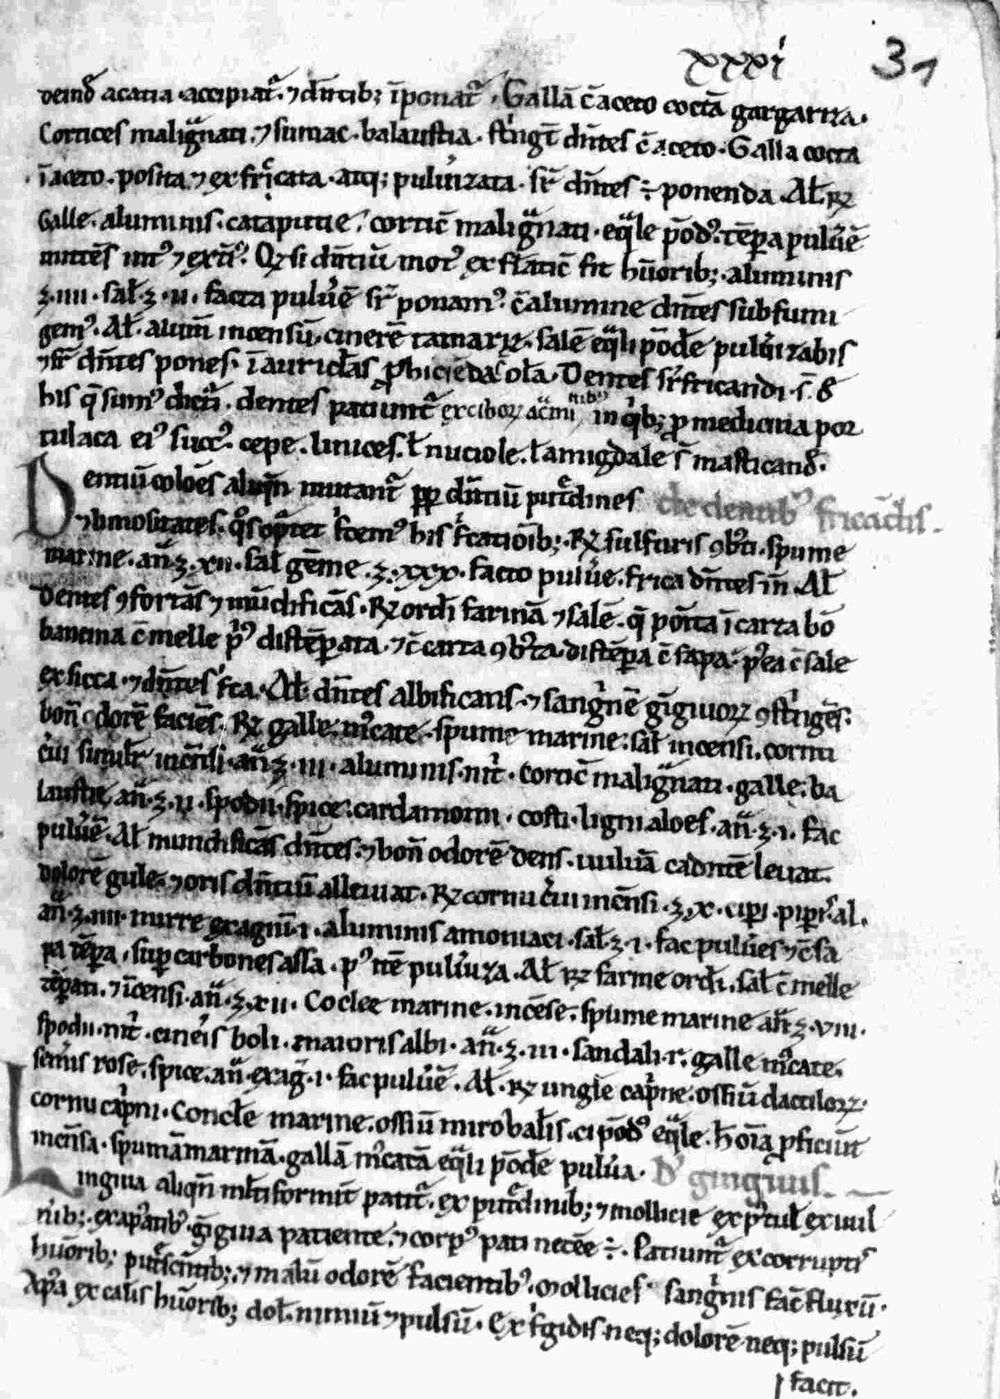 xxxi 31
deinđ acatia accipiat᷑. ⁊ dn̄tib; īponat᷑. Gallā c̄ aceto coctā gargariza.
Cortices maligᵃnati. ⁊ sumac. balaustia. st᷑ingt̄ dn̄tes c̄ aceto. Galla cocta
ī aceto. posita ⁊ exfricata. atq; puluizata. sr̄ dn̄tes ÷ ponenda. Al̵. ℞
Galle. aluminis. cataputie. cortic̄ maligᵃnati. eq̄le pōdꝰ. tēpera puluē
mittēs intꝰ ⁊ extᵃ. Q̇ si dn̄tiū motꝰ ex flatic̄ fit hūorib;. aluminis
ʒ. iiii. sal̵. ʒ. ii. facta puluē sr̄ ponamꝰ. c̄ alumine dn̄tes subfumi
gemꝰ. Al̵. alum̄ incensū. cinerē tamarix. salē eq̄li pōdē puluizabis
⁊ sr̄ dn̄tes pones.
Dentes sr̄ fricandi. s̄. đ
his q̄ sumꝰ dict̄i. dentes patiunt᷑ ex cibor̨ in qⁱb; ꝓ medicina por
tulaca eiꝰ succꝰ. cepe. l̵ nuces. l̵ nuciole. l̵ amigdale s̄ masticanđ.
Dentiū coloēs aliqn̄ mutant᷑ ꝓp dn̄tiū putᵉdines de dentibꝰ fricādis.
⁊ limositates. his f̄catiōib;. ℞ sulfuris ꝯbᵗi. spume
marine. an̄. ʒ. xii. sal̵ gēme. ʒ. xxx. facto puluē. frica dn̄tes in̄. Al̵
Dentes ꝯfortās ⁊ mūdificās. ℞ ordi farinā ⁊ salē. q̄ poīta ī carta bō
bancina c̄ melle pⁱꝰ distēperata. ⁊ c̄ carta ꝯbᵗta. distēpera c̄ sapa. pᵗea c̄ sale
exsicca. ⁊ dn̄tes f̄ca. Al̵. dn̄tes albificans. ⁊ sangⁱnē gīgiuor̨ ꝯstⁱngēs.
bon̄ odorē faciēs. ℞ galle. mᵘcate. spume marine. sal̵ incensi. cornu
cⁱui simil̵r incēsi. an̄. ʒ. iii. aluminis. nitⁱ. cortic̄ maligᵃnati. galle. ba
laustie, an̄. ʒ. ii. spodii. spice. cardamomi. costi. ligni aloes. an̄. ʒ. i. fac
puluē. Al̵ mundificās dn̄tes. ⁊ bon̄ odorē dens. uuluā cadntē leuat.
dolorē gule. ⁊ oris dn̄tiū alleuiat. ℞ cornu cⁱui incēsi. ʒ. x. cipⁱ. pipⁱs. al.
an̄. ʒ. iiii. mirre exagiū. i. aluminis amoniaci. sal̵. ʒ. i. fac puluēs ⁊ c̄ sa
pa tēpera. suꝑ carbones assa. pꝰ itē puluiza. Al̵. ℞ farine ordi. sal̵ c̄ melle
tēpati. ⁊ īcensi. an̄. ʒ. xii. Coclee marine. incēse. spume marine an̄. ʒ. viii.
spodii. nitⁱ. cineⁱs boli. maioris albi. an̄. ʒ. iii. sandali. rᵘ. galle mᵘcate.
semⁱs rose. spice. an̄. exaḡ. i. fac puluē. Al̵. ℞ ungle capⁱne. ossiū dactilor̨.
cornu capⁱni. Concle marine. ossiū mirobalis. ci pōdꝰ eq̄le. h̄ oīa ꝓficiūt
incēsa. spumā marinā. gallā mᵘcatā eq̄li pōdē puluīa. De gingiuis.
Gingiua aliqn̄ ml̵tiformit᷑ patit᷑. ex putᵉdinib; ⁊ mollicie
rib;. gīgiua patiente. ⁊ corpꝰ pati necēe ÷. Patiunt᷑ ex corruptis
hūorib; ⁊ malū odorē facientibꝰ. Mollicies sangⁱnis fac̄ fluxū.
Apᵃ ex calⁱis hūorib; dol̵. nimiū ⁊ pulsū. Ex fⁱgidis neq; dolorē neq; pulsū
facit.